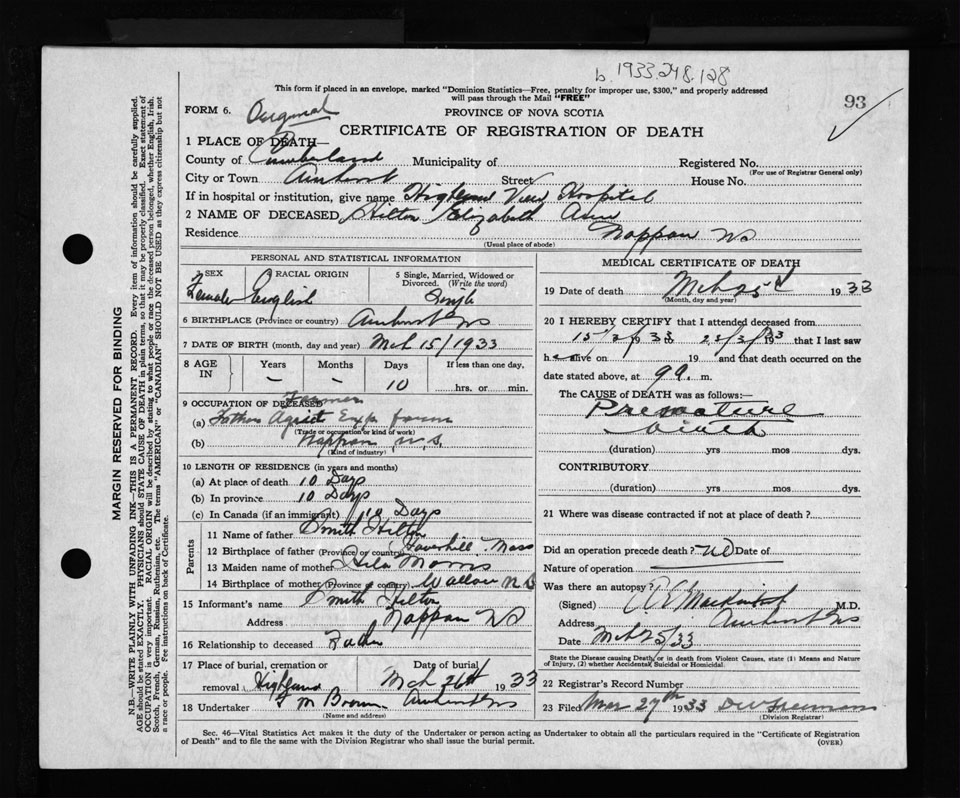 b. 1933.248.128
This form if placed in an envelope, marked "Dominion Statistics—Free, penalty for improper use, $300," and properly addressed
will pass through the Mail "FREE"
93
FORM 6. Original
PROVINCE OF NOVA SCOTIA
CERTIFICATE OF REGISTRATION OF DEATH
1 PLACE OF DEATH—
County of Cumberland Municipality of Registered No.
(For use of Registrar General only)
City or Town Amherst Street House No.
If in hospital or institution, give name Highland View Hospital
2 NAME OF DECEASED Hilton Elizabeth
Residence Nappan NS
(Usual place of abode)
PERSONAL AND STATISTICAL INFORMATION
SEX Female
RACIAL ORIGIN English
5 Single, Married, Widowed or Divorced. (Write the word) Single
6 BIRTHPLACE (Province or country) Amherst NS
7 DATE OF BIRTH (month, day and year) Mch 15/1933
8 AGE IN
Years Months Days If less than one day,
- - 10 hrs. or min.
9 OCCUPATION OF DECEASED Farmer
(a) Father Agricl Exp farm
(Trade or occupation or kind of work)
(b) Nappan N.S.
(Kind of industry)
10 LENGTH OF RESIDENCE (in years and months)
(a) At place of death 10 Days
(b) In province 10 Days
(c) In Canada (if an immigrant) 10 Days
Parents
11 Name of father Smith Hilton
12 Birthplace of father (Province or country) Haverhill Mass
13 Maiden name of mother Morris
14 Birthplace of mother (Province or country) Wallace N.S
15 Informant's name Smith Hilton
Address Nappan NS
16 Relationship to deceased Father
17 Place of burial, cremation or Date of burial
removal Highland Mch 26th 1933
18 Undertaker Brown Amherst NS
(Name and address)
MEDICAL CERTIFICATE OF DEATH
19 Date of death Mch 25 1933
(Month, day and year)
20 I HEREBY CERTIFY that I attended deceased from
15/3/1933 /3/1933 that I last saw
h alive on 19 and that death occurred on the
date stated above, at 9 m.
The CAUSE of DEATH was as follows:—
Premature
birth
(duration) yrs mos dys.
CONTRIBUTORY
(duration) yrs mos dys.
21 Where was disease contracted if not at place of death?
Did an operation precede death? No Date of
Nature of operation
Was there an autopsy?
(Signed) Mackintosh M.D.
Address Amherst NS
Date Mch 25/33
State the Disease causing Death, or in death from Violent Causes, state (1) Means and Nature
of Injury, (2) whether Accidental, Suicidal or Homicidal.
22 Registrar's Record Number
23 Filed Mar 27th 1933 Freeman
(Division Registrar)
Sec. 46—Vital Statistics Act makes it the duty of the Undertaker or person acting as Undertaker to obtain all the particulars required in the "Certificate of Registration
of Death" and to file the same with the Division Registrar who shall issue the burial permit.
(OVER)
MARGIN RESERVED FOR BINDING
N.B.—WRITE PLAINLY WITH UNFADING INK—THIS IS A PERMANENT RECORD. Every item of information should be carefully supplied.
AGE should be stated EXACTLY. PHYSICIANS should STATE CAUSE OF DEATH in plain terms, so that it may be properly classified. Exact statement of
OCCUPATION is very important. RACIAL ORIGIN will be described by stating to what people or race the deceased person belonged, whether English, Irish,
Scotch, French, German, Russian, Ruthenian, etc. The terms "AMERICAN" or "CANADIAN" SHOULD NOT BE USED as they express citizenship but not
a race or people. Fee instructions on back of Certificate.